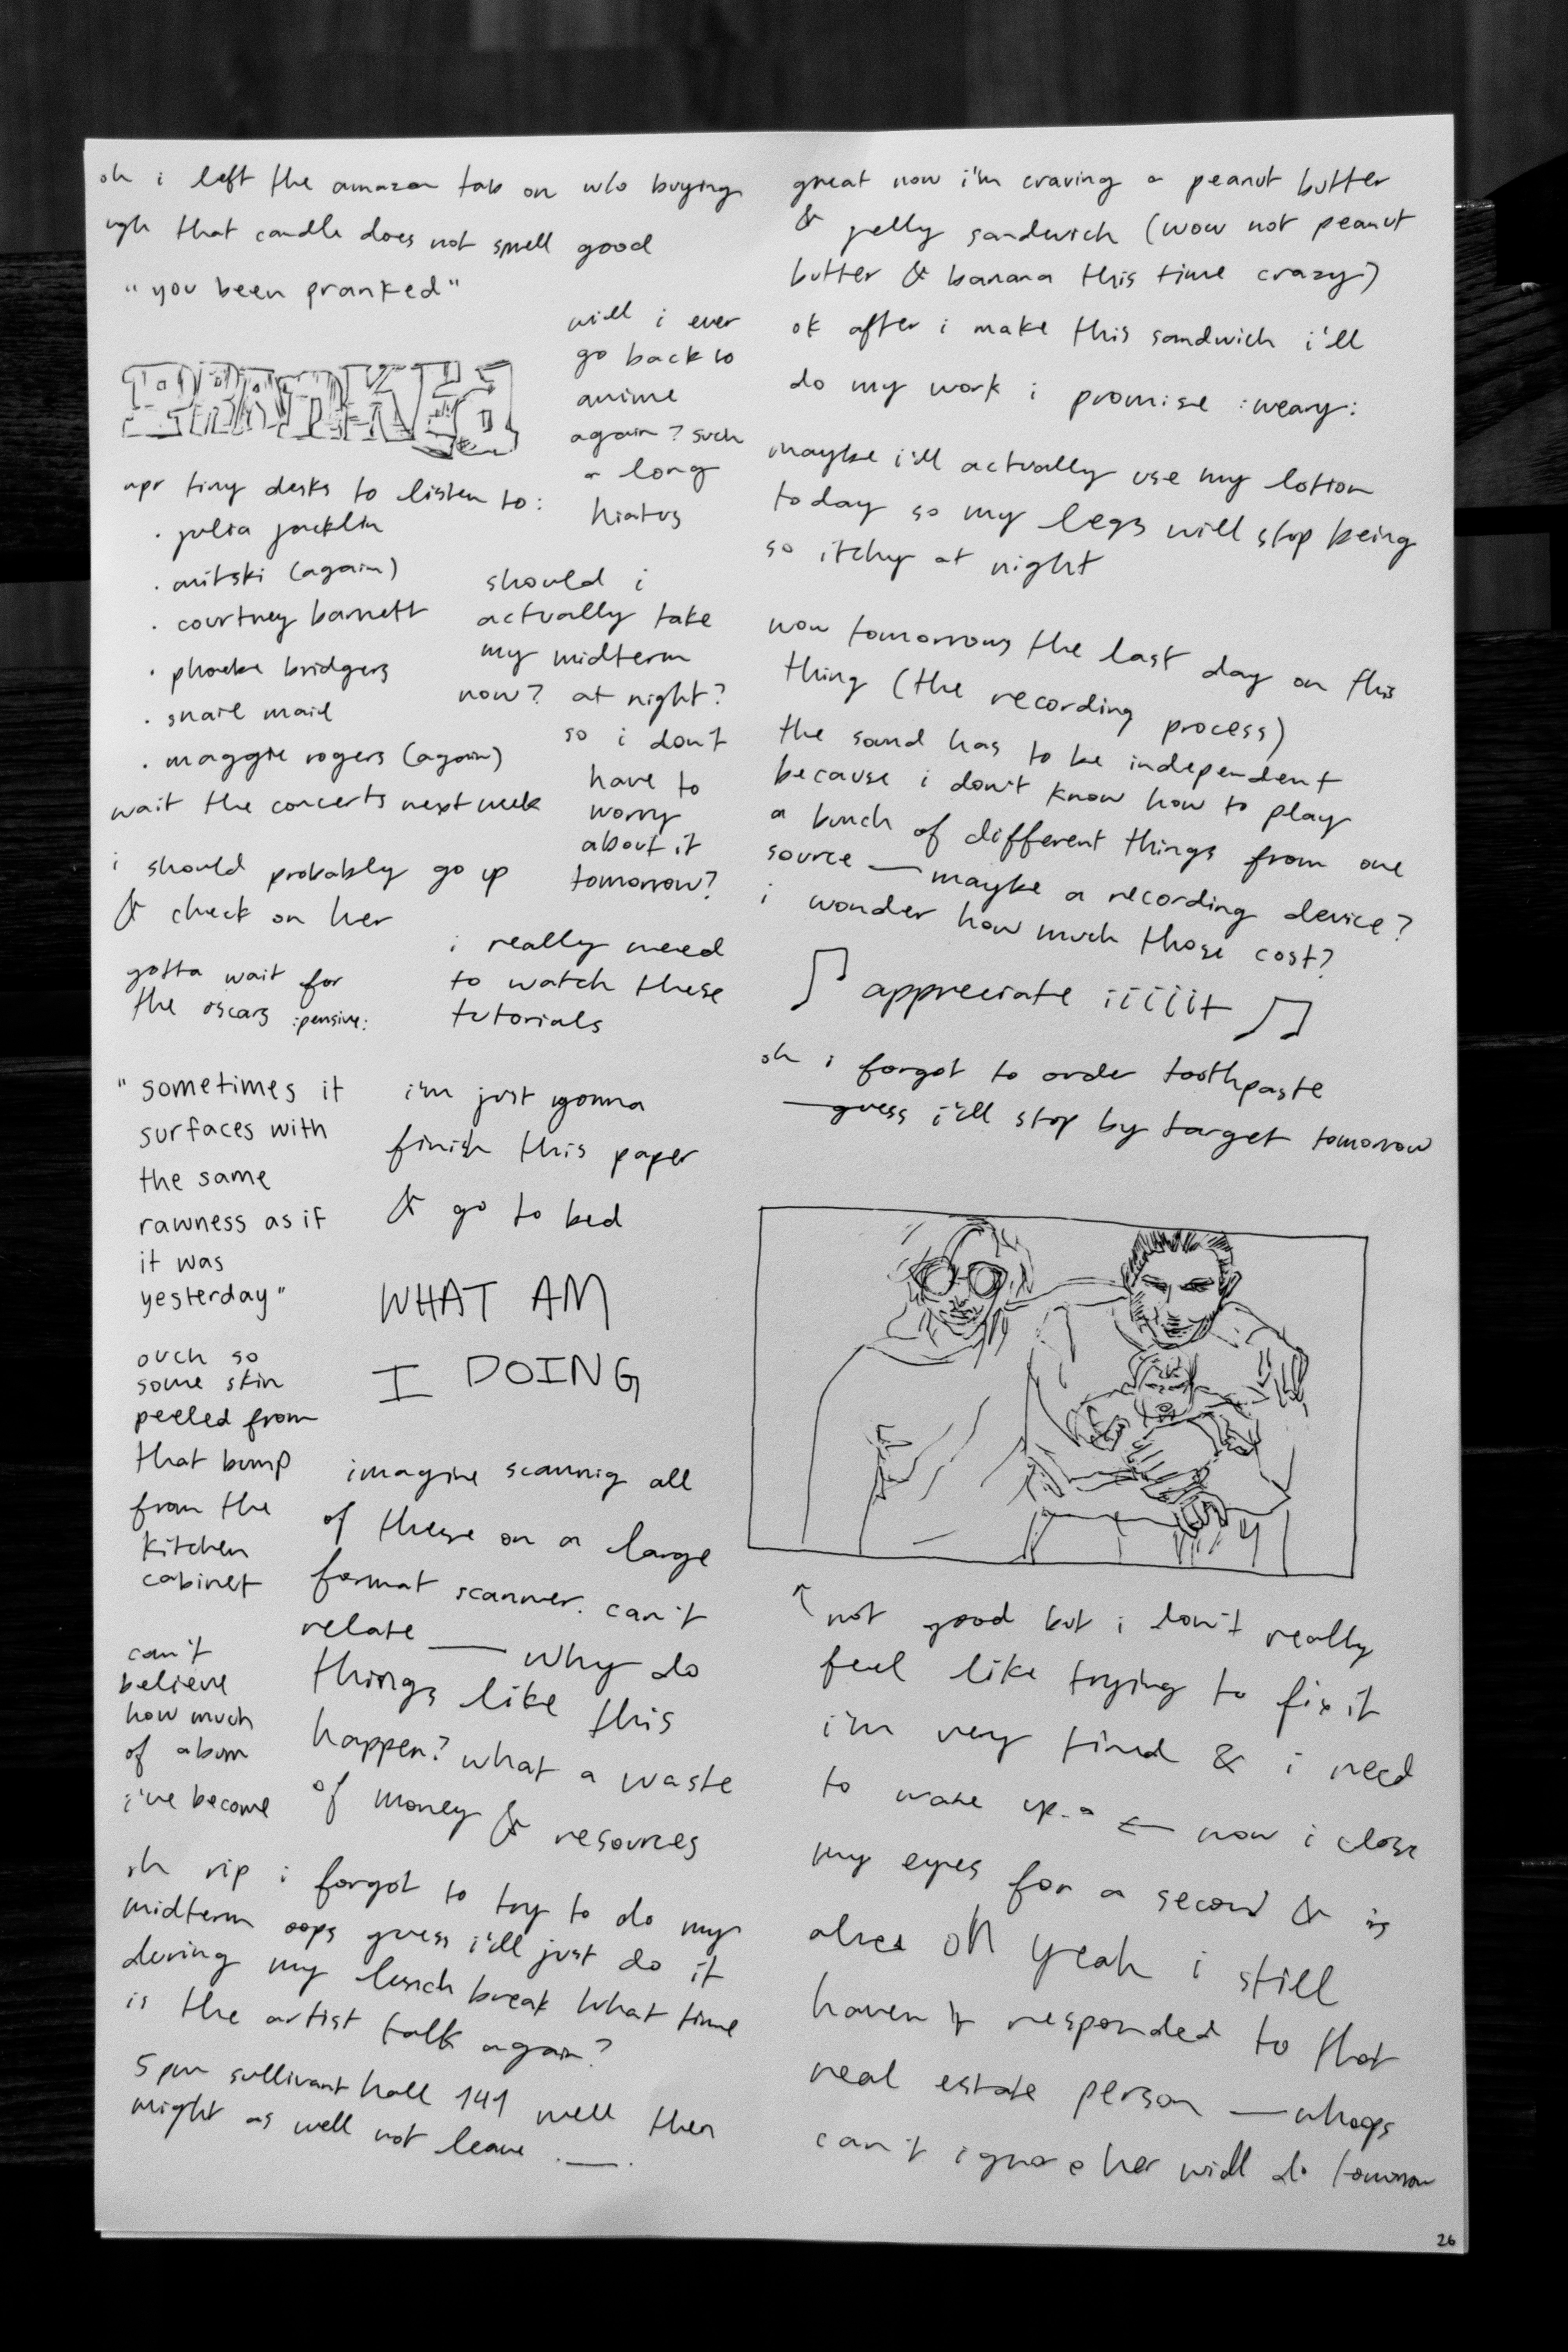 oh i left the amazon tab on w/o buying
ugh that candle does not smell good
"you been pranked"
PRANKEd
will i ever
go back to
anime
again? such
a long
hiatus
npr tiny desks to listen to:
· julia jacklin
· mitski (again)
· courtney barnett
· phoebe bridgers
· snail mail
· maggie rogers (again)
wait the concerts next week
should i
actually take
my midterm
now? at night?
so i don't
have to
worry
about it
tomorrow?
i should probably go up
& check on her
gotta wait for
the oscars :pensive:
i really need
to watch these
tutorials
"sometimes it
surfaces with
the same
rawness as if
it was
yesterday"
i'm just gonna
finish this paper
& go to bed
WHAT AM
I DOING
ouch so
some skin
peeled from
that bump
from the
kitchen
cabinet
imagine scannig all
of these on a large
format scanner. can't
relate — why do
things like this
happen? what a waste
of money & resources
can't
believe
how much
of a bum
i've become
oh rip i forgot to try to do my
midterm oops guess i'll just do it
during my lunch break what time
is the artist talk again?
5 pm sullivant hall 141 well then
might as well not leave .__.
great now i'm craving a peanut butter
& jelly sandwich (wow not peanut
butter & banana this time crazy)
ok after i make this sandwich i'll
do my work i promise :weary:
maybe i'll actually use my lotion
today so my legs will stop being
so itchy at night
wow tomorrows the last day on this
thing (the recording process)
the sound has to be independent
because i don't know how to play
a bunch of different things from one
source — maybe a recording device?
i wonder how much those cost?
♫ appreciate iiiiit ♫
oh i forgot to order toothpaste
— guess i'll stop by target tomorrow
↑ not good but i don't really
feel like trying to fix it
i'm very tired & i need
to wake up. ← now i close
my eyes for a second & is
oh yeah i still
haven't responded to that
real estate person — whoops
can't ignore her will do tomorrow
26